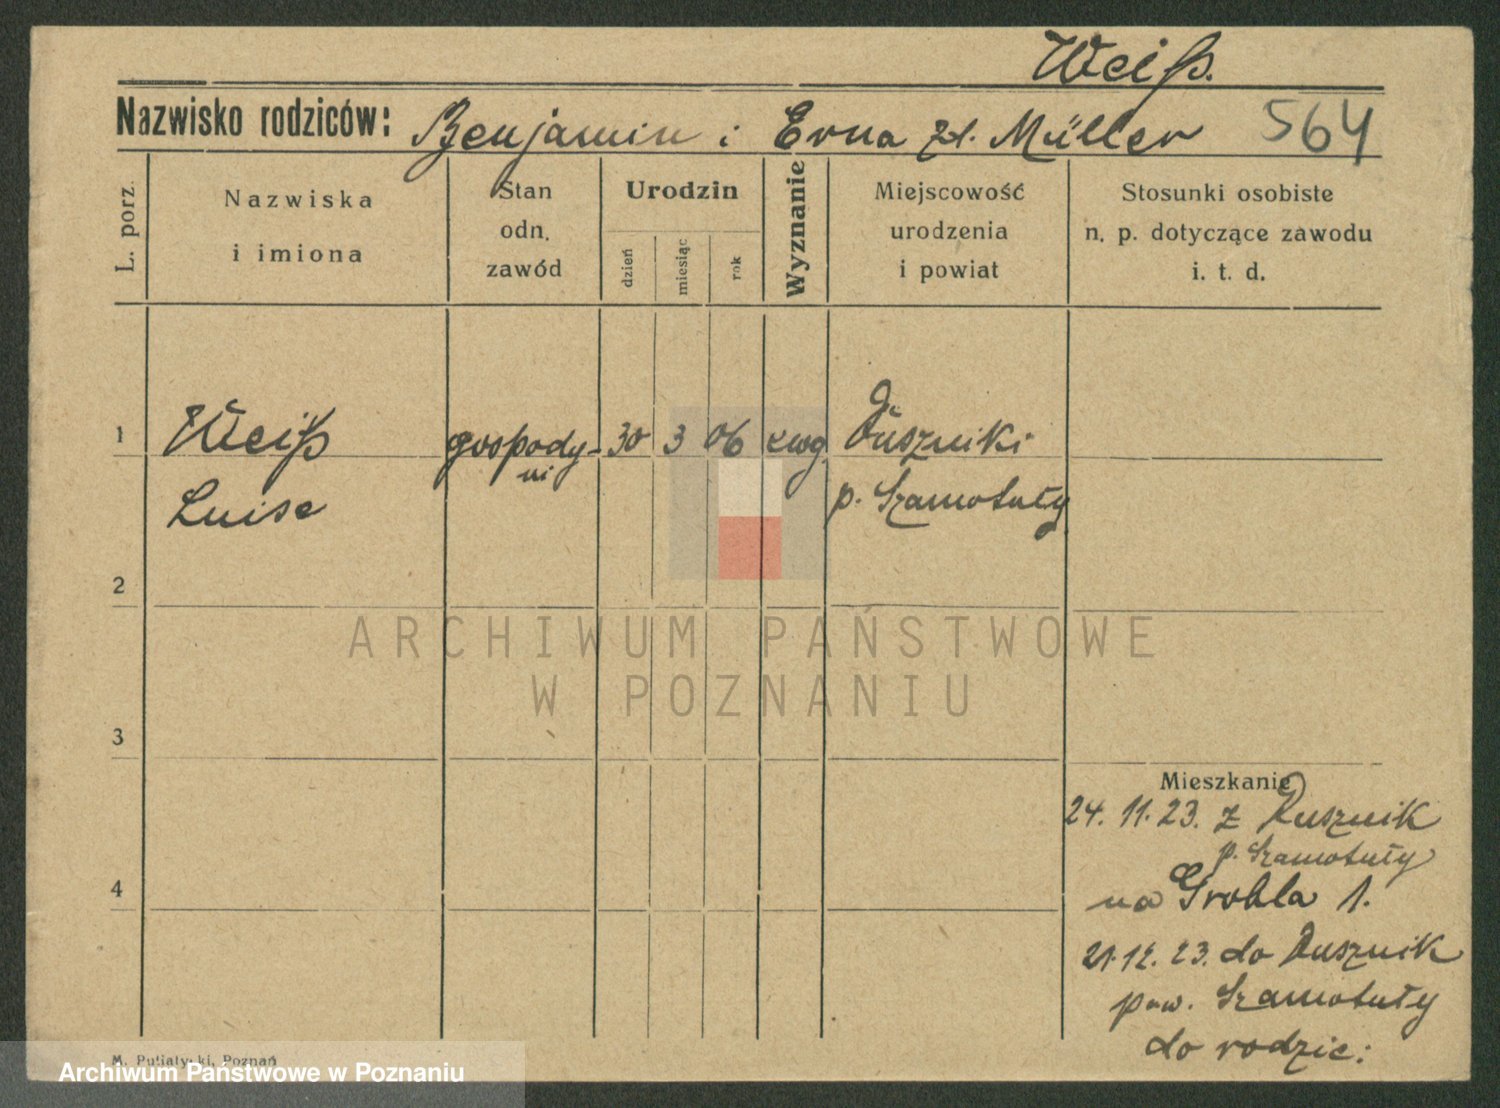 Weiß.
Nazwisko rodziców: Benjamin i Erna zd. Müller 564
L. porz.
Nazwiska
i imiona
Stan
odn.
zawód
Urodzin
dzień
miesiąc
rok
Wyznanie
Miejscowość
urodzenia
i powiat
Stosunki osobiste
n. p. dotyczące zawodu
i. t. d.
1 Weiß gospody- 30 3 06 ewg. Duszniki
ni
Luise p. Szamotuły
2
ARCHIWUM PAŃSTWOWE
W POZNANIU
3
Mieszkanie
24. 11. 23. z Dusznik
p. Szamotuły
4
na Grobla 1.
21. 12. 23. do Dusznik
pow. Szamotuły
do rodzic:
M. Putiatycki, Poznań
Archiwum Państwowe w Poznaniu